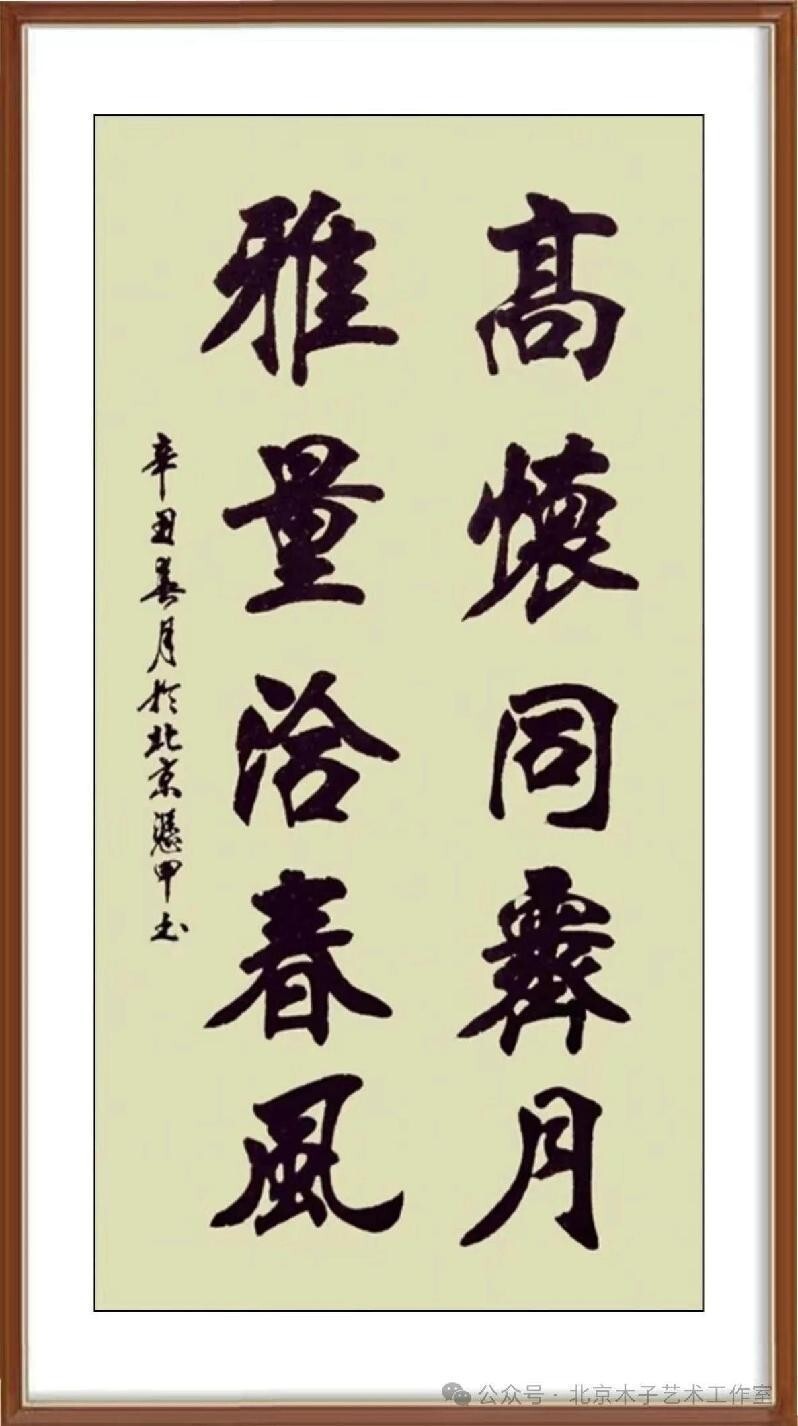 高懷同霽月
雅量洽春風
辛丑春月於北京憑甲书
公众号·北京木子艺术工作室